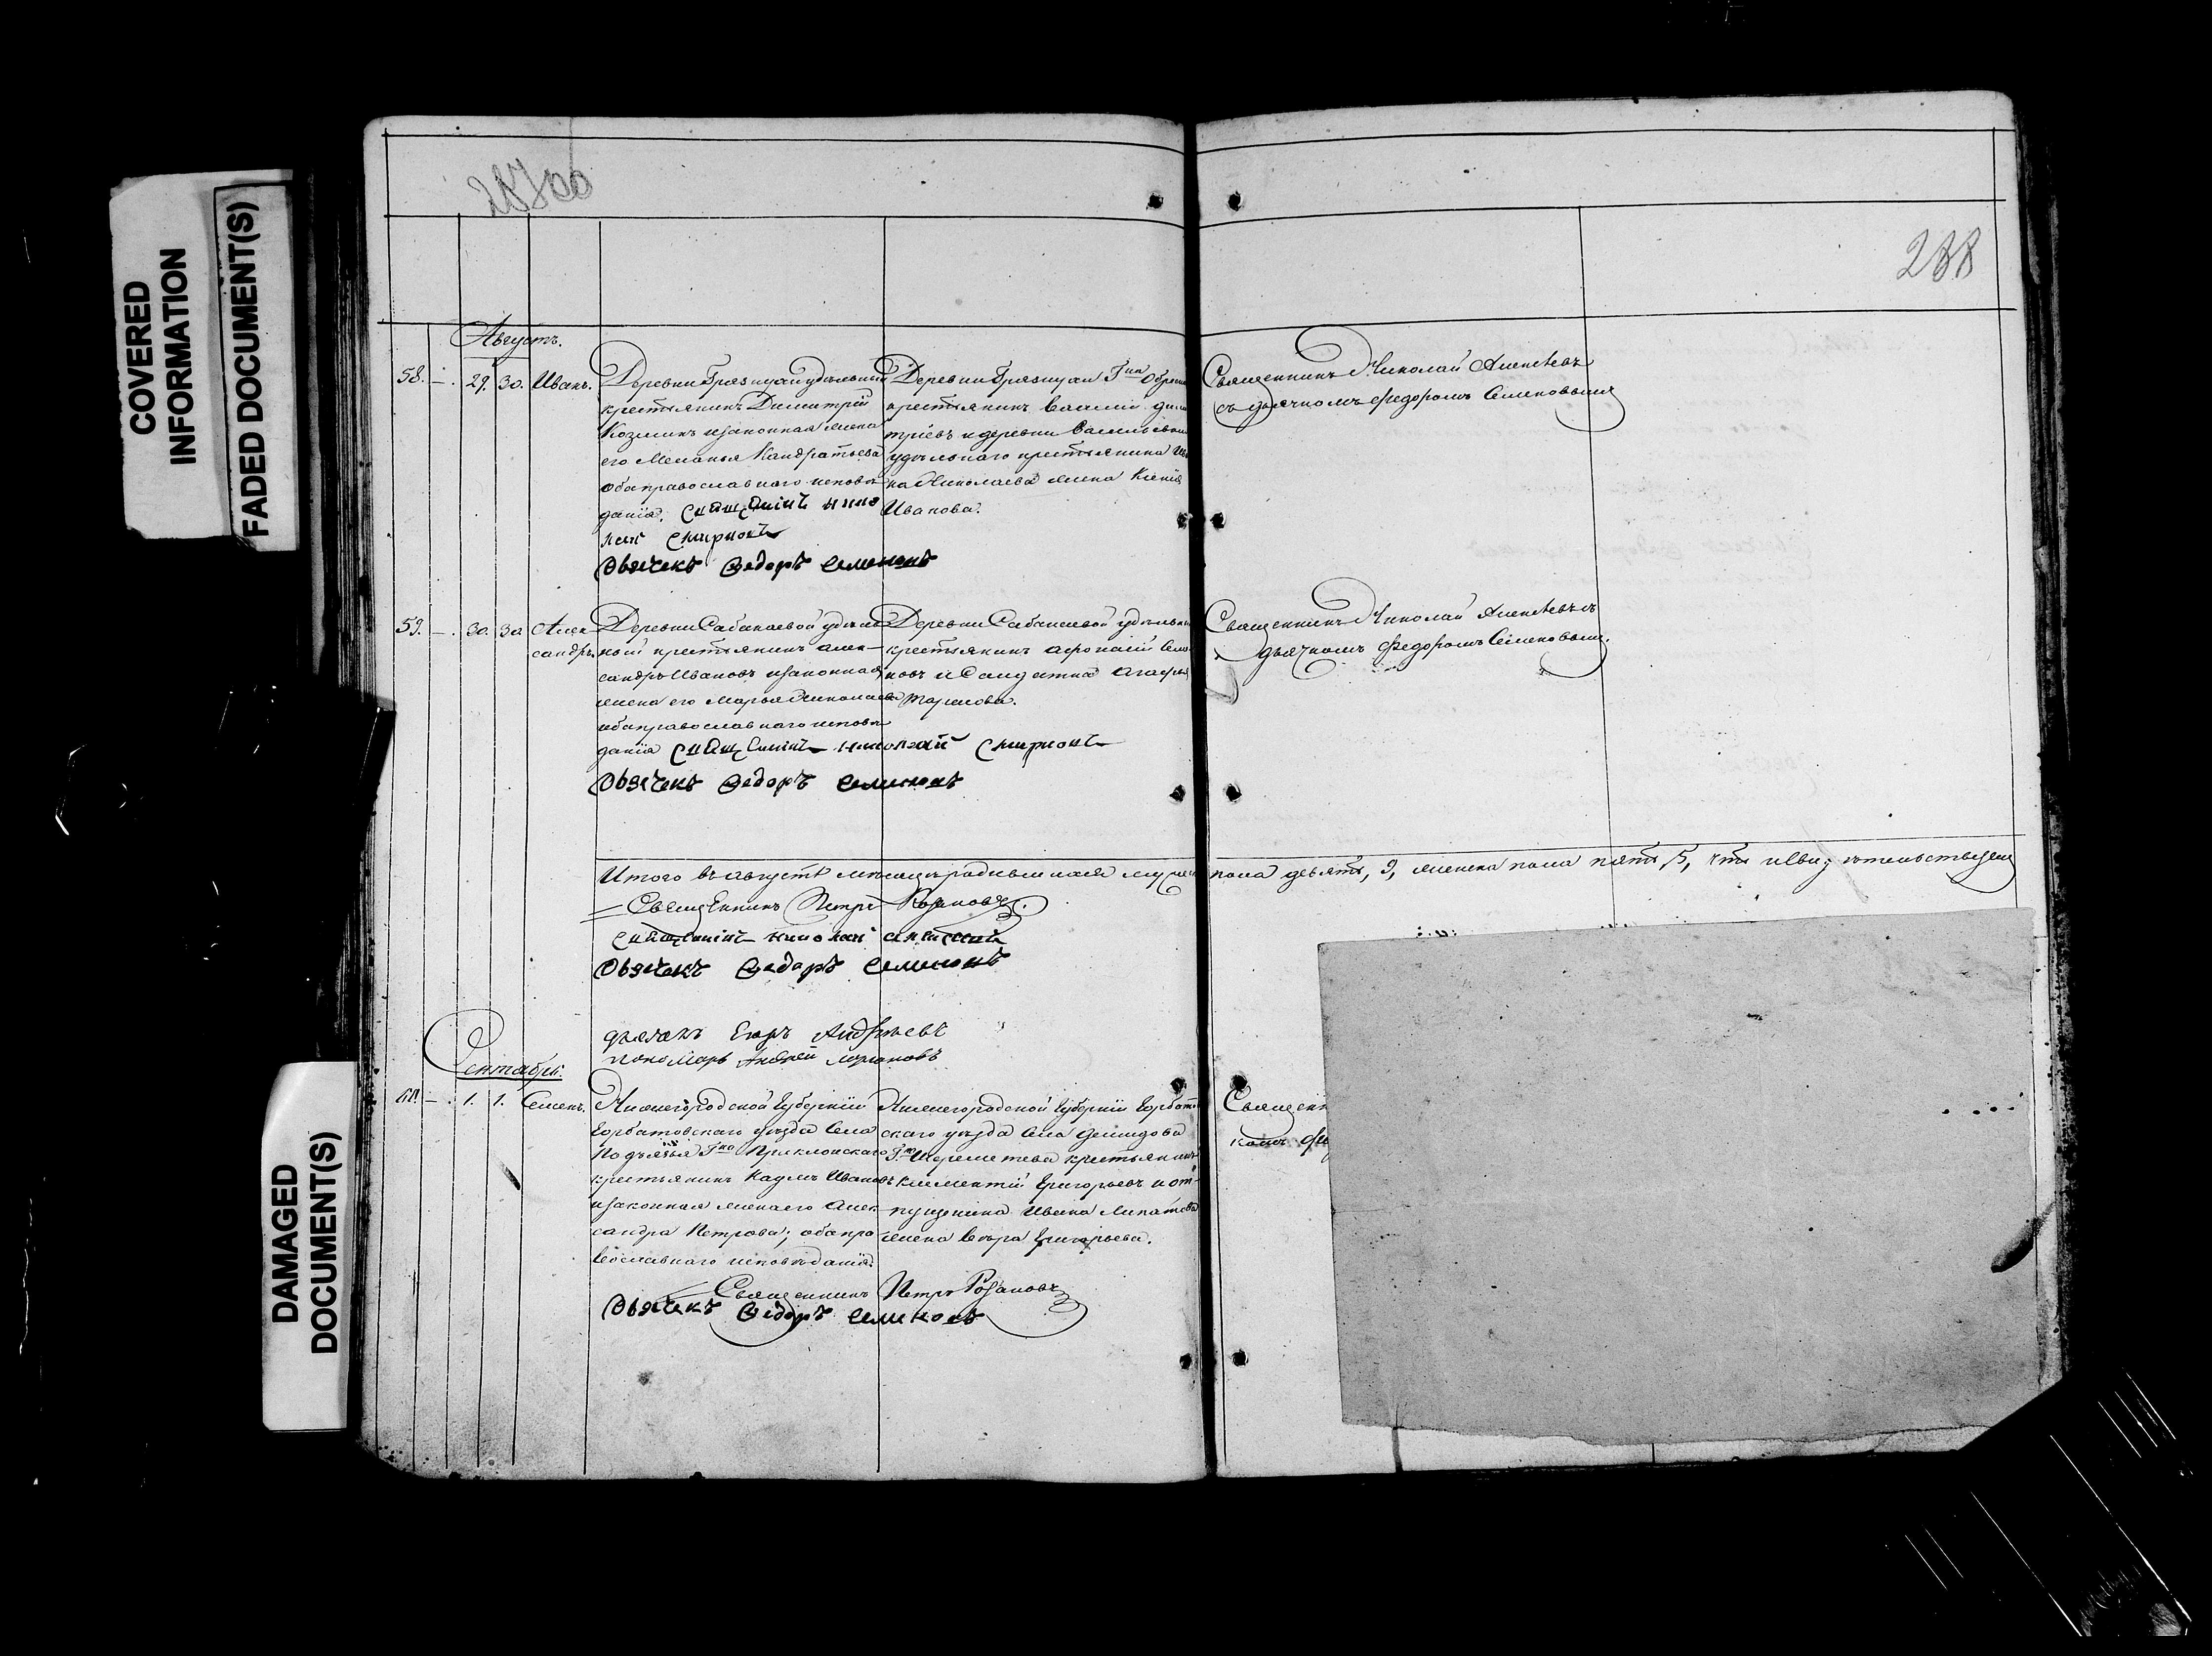 COVERED
INFORMATION
FADED DOCUMENT(S)
DAMAGED
DOCUMENT(S)
288
Августъ.
58. — 29. 30. Иванъ.
Деревни Грязнухи удѣльный
крестьянинъ Димитрій
Козминъ и законная жена
его Меланья Кандратьева
оба православнаго исповѣ
данія. Священникъ Нико
лай Смирновъ
Дьячекъ Ѳедоръ Семеновъ
Деревни Грязнухи Гна
крестьянинъ Василій Дими
тріевъ и деревни
удѣльнаго крестьянина Ива
на Николаева жена Ксенія
Иванова.
Священникъ Николай Алексѣевъ
съ дьячкомъ Федоромъ Семеновымъ
59. — 30. 30. Алек
сандръ.
Деревни Сабанаевой удѣль
ный крестьянинъ Алек-
сандръ Ивановъ и законная
жена его Марья Николаева
оба православнаго исповѣ
данія Священникъ Николай Смирновъ
Дьячекъ Ѳедоръ Семеновъ
Деревни Сабанаевой удѣльный
крестьянинъ Афонасій Семе
новъ и Солдатка Агафья
Священникъ Николай Алексѣевъ съ
дьячкомъ Федоромъ Семеновымъ.
Итого въ августѣ мѣсяцѣ родившихся мужеска пола девять, 9, женска пола пять, 5, что и свидѣтельствуемъ
Священникъ Петръ Розановъ.
Священникъ Николай
Дьячекъ Ѳедоръ Семеновъ
дьячекъ Егоръ Андреевъ
пономарь Андрей
Сентябрь.
60. — 1. 1. Семенъ.
Нижегородской Губерніи
Горбатовскаго уѣзда Села
Гна Приклонскаго
крестьянинъ Ивановъ
и законная жена его Алек-
сандра Петрова; оба пра
вославнаго исповѣданія.
Священникъ Петръ Розановъ
Дьячекъ Ѳедоръ Семеновъ
Нижегородской Губерніи Горбатов
скаго уѣзда Села Демидова
Гна Шереметева крестьянинъ
Климентій Григорьевъ и от-
пущенника Ивана
жена Григорьева.
Священн
комъ Фе